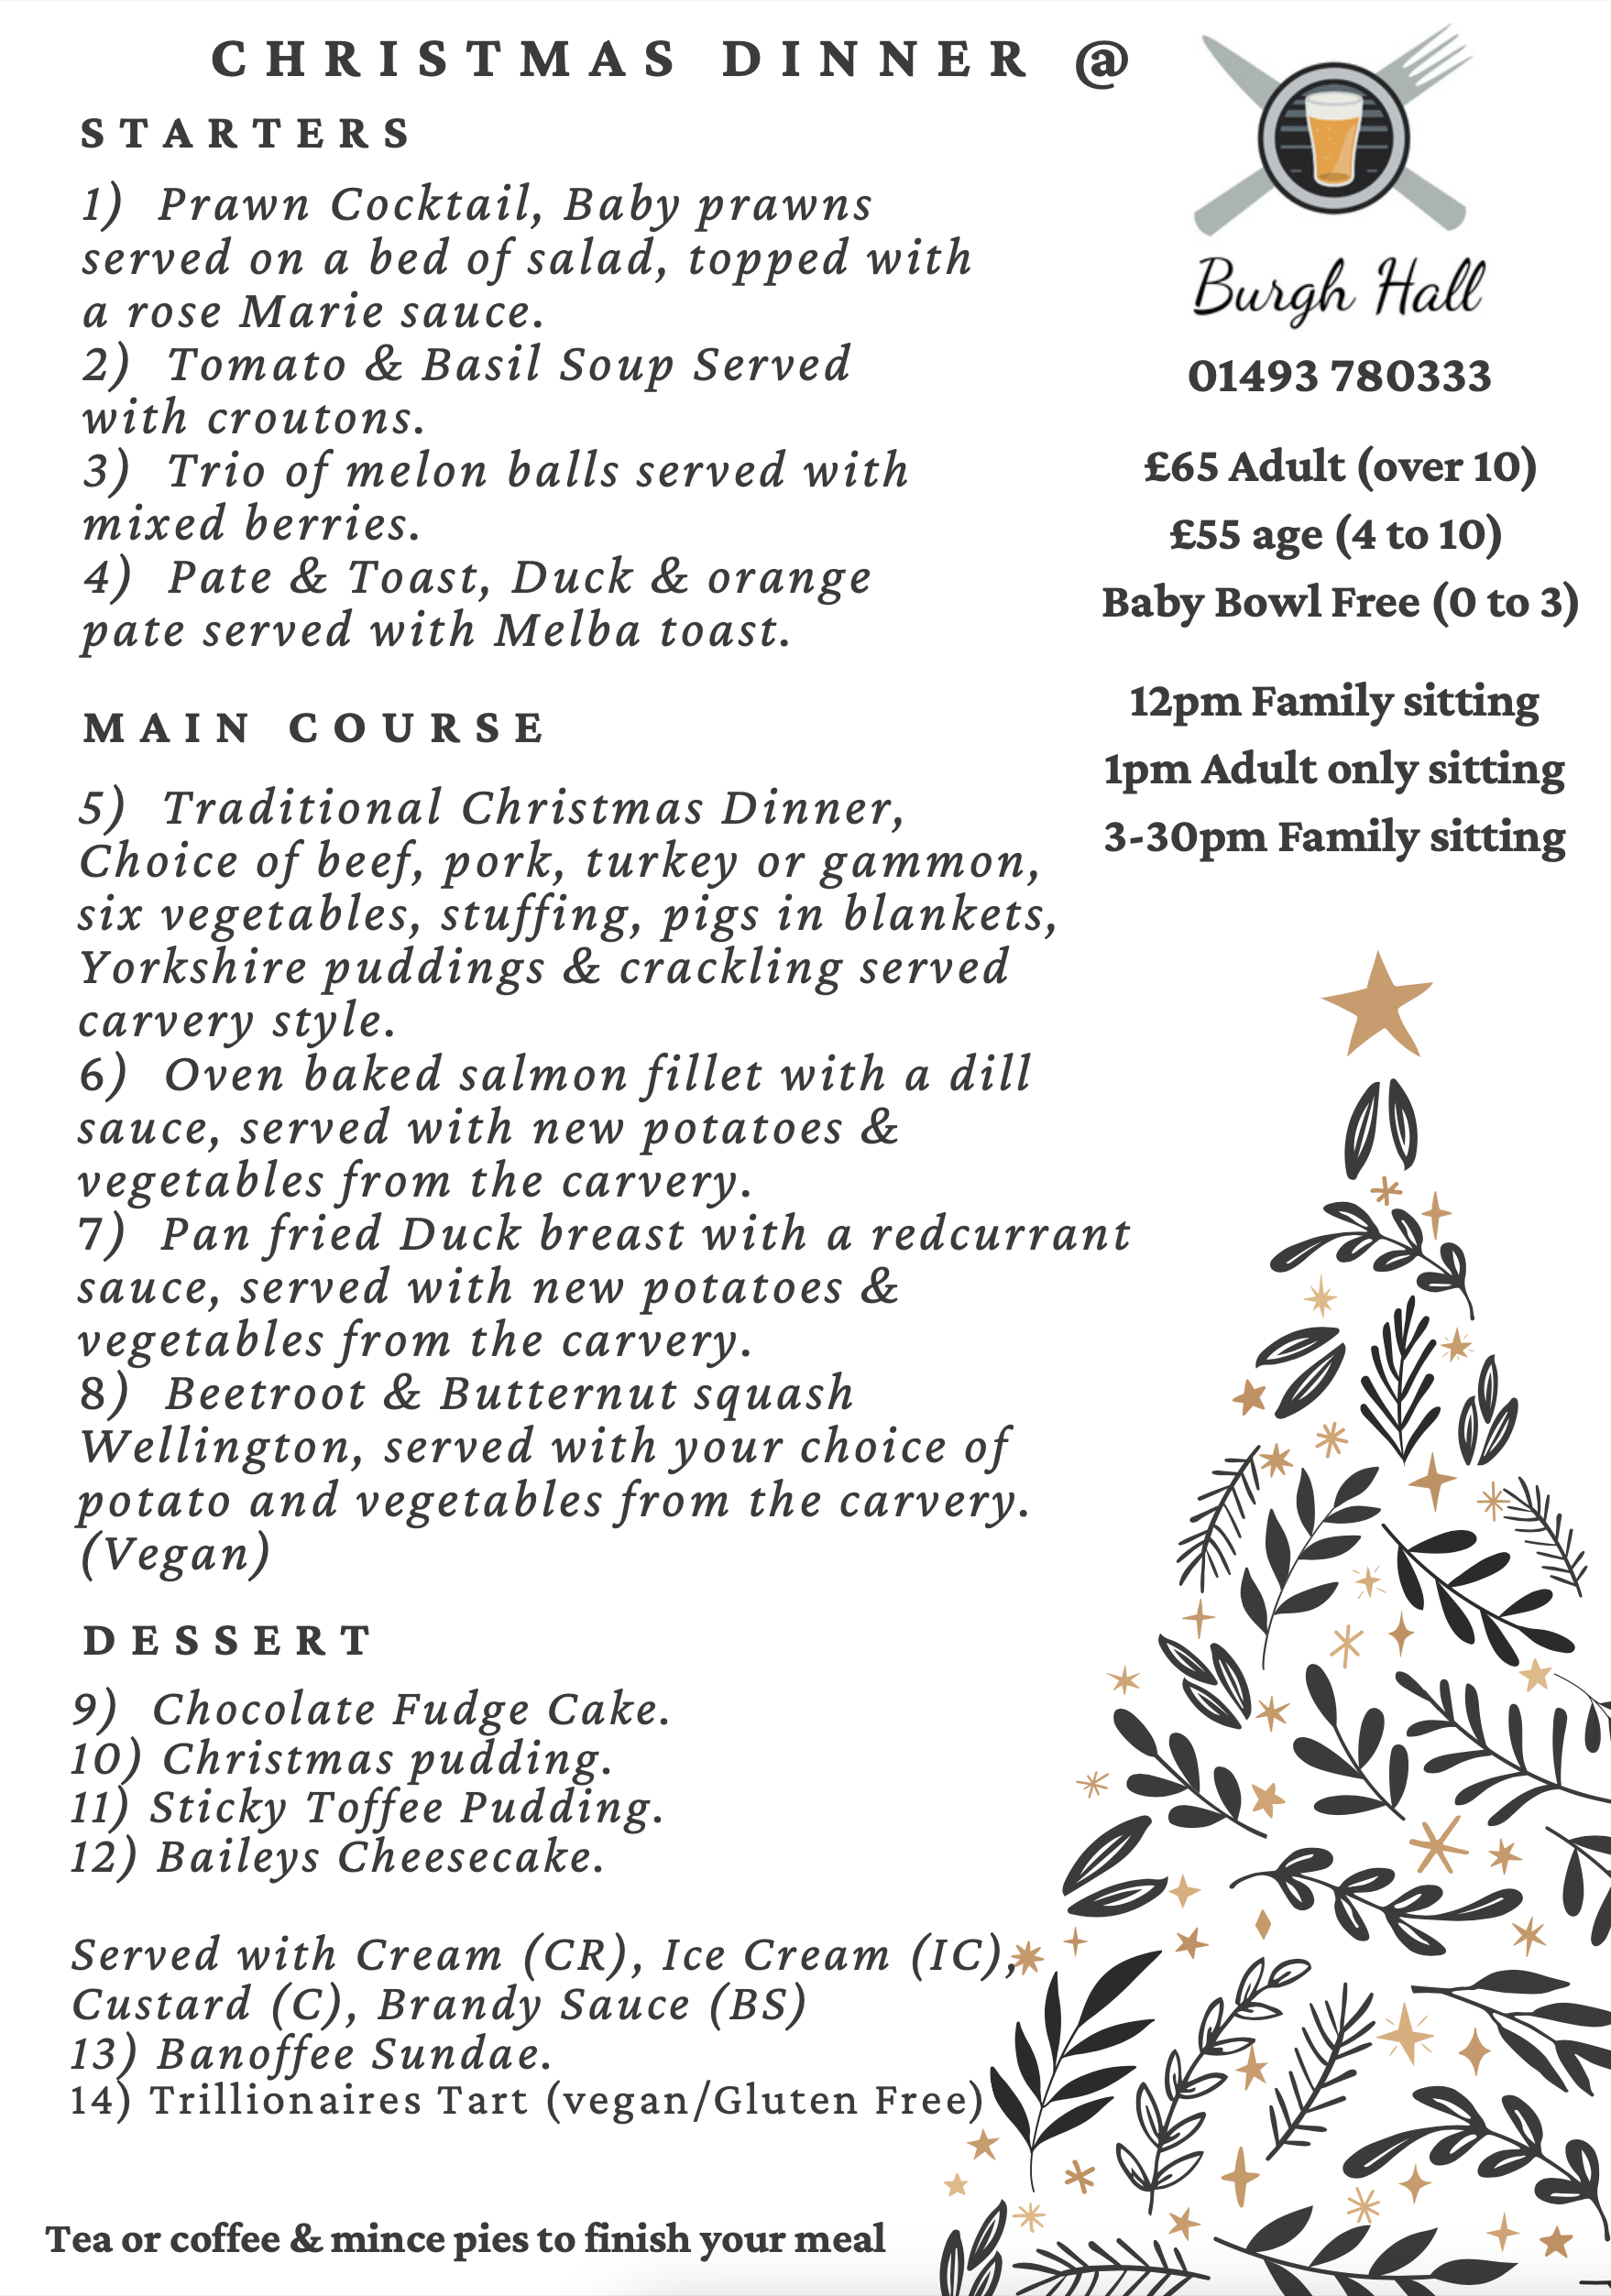 CHRISTMAS DINNER @
STARTERS
1) Prawn Cocktail, Baby prawns
served on a bed of salad, topped with
a rose Marie sauce.
2) Tomato & Basil Soup Served
with croutons.
3) Trio of melon balls served with
mixed berries.
4) Pate & Toast, Duck & orange
pate served with Melba toast.
MAIN COURSE
5) Traditional Christmas Dinner,
Choice of beef, pork, turkey or gammon,
six vegetables, stuffing, pigs in blankets,
Yorkshire puddings & crackling served
carvery style.
6) Oven baked salmon fillet with a dill
sauce, served with new potatoes &
vegetables from the carvery.
7) Pan fried Duck breast with a redcurrant
sauce, served with new potatoes &
vegetables from the carvery.
8) Beetroot & Butternut squash
Wellington, served with your choice of
potato and vegetables from the carvery.
(Vegan)
DESSERT
9) Chocolate Fudge Cake.
10) Christmas pudding.
11) Sticky Toffee Pudding.
12) Baileys Cheesecake.
Served with Cream (CR), Ice Cream (IC),
Custard (C), Brandy Sauce (BS)
13) Banoffee Sundae.
14) Trillionaires Tart (vegan/Gluten Free)
Tea or coffee & mince pies to finish your meal
Burgh Hall
01493 780333
£65 Adult (over 10)
£55 age (4 to 10)
Baby Bowl Free (0 to 3)
12pm Family sitting
1pm Adult only sitting
3-30pm Family sitting